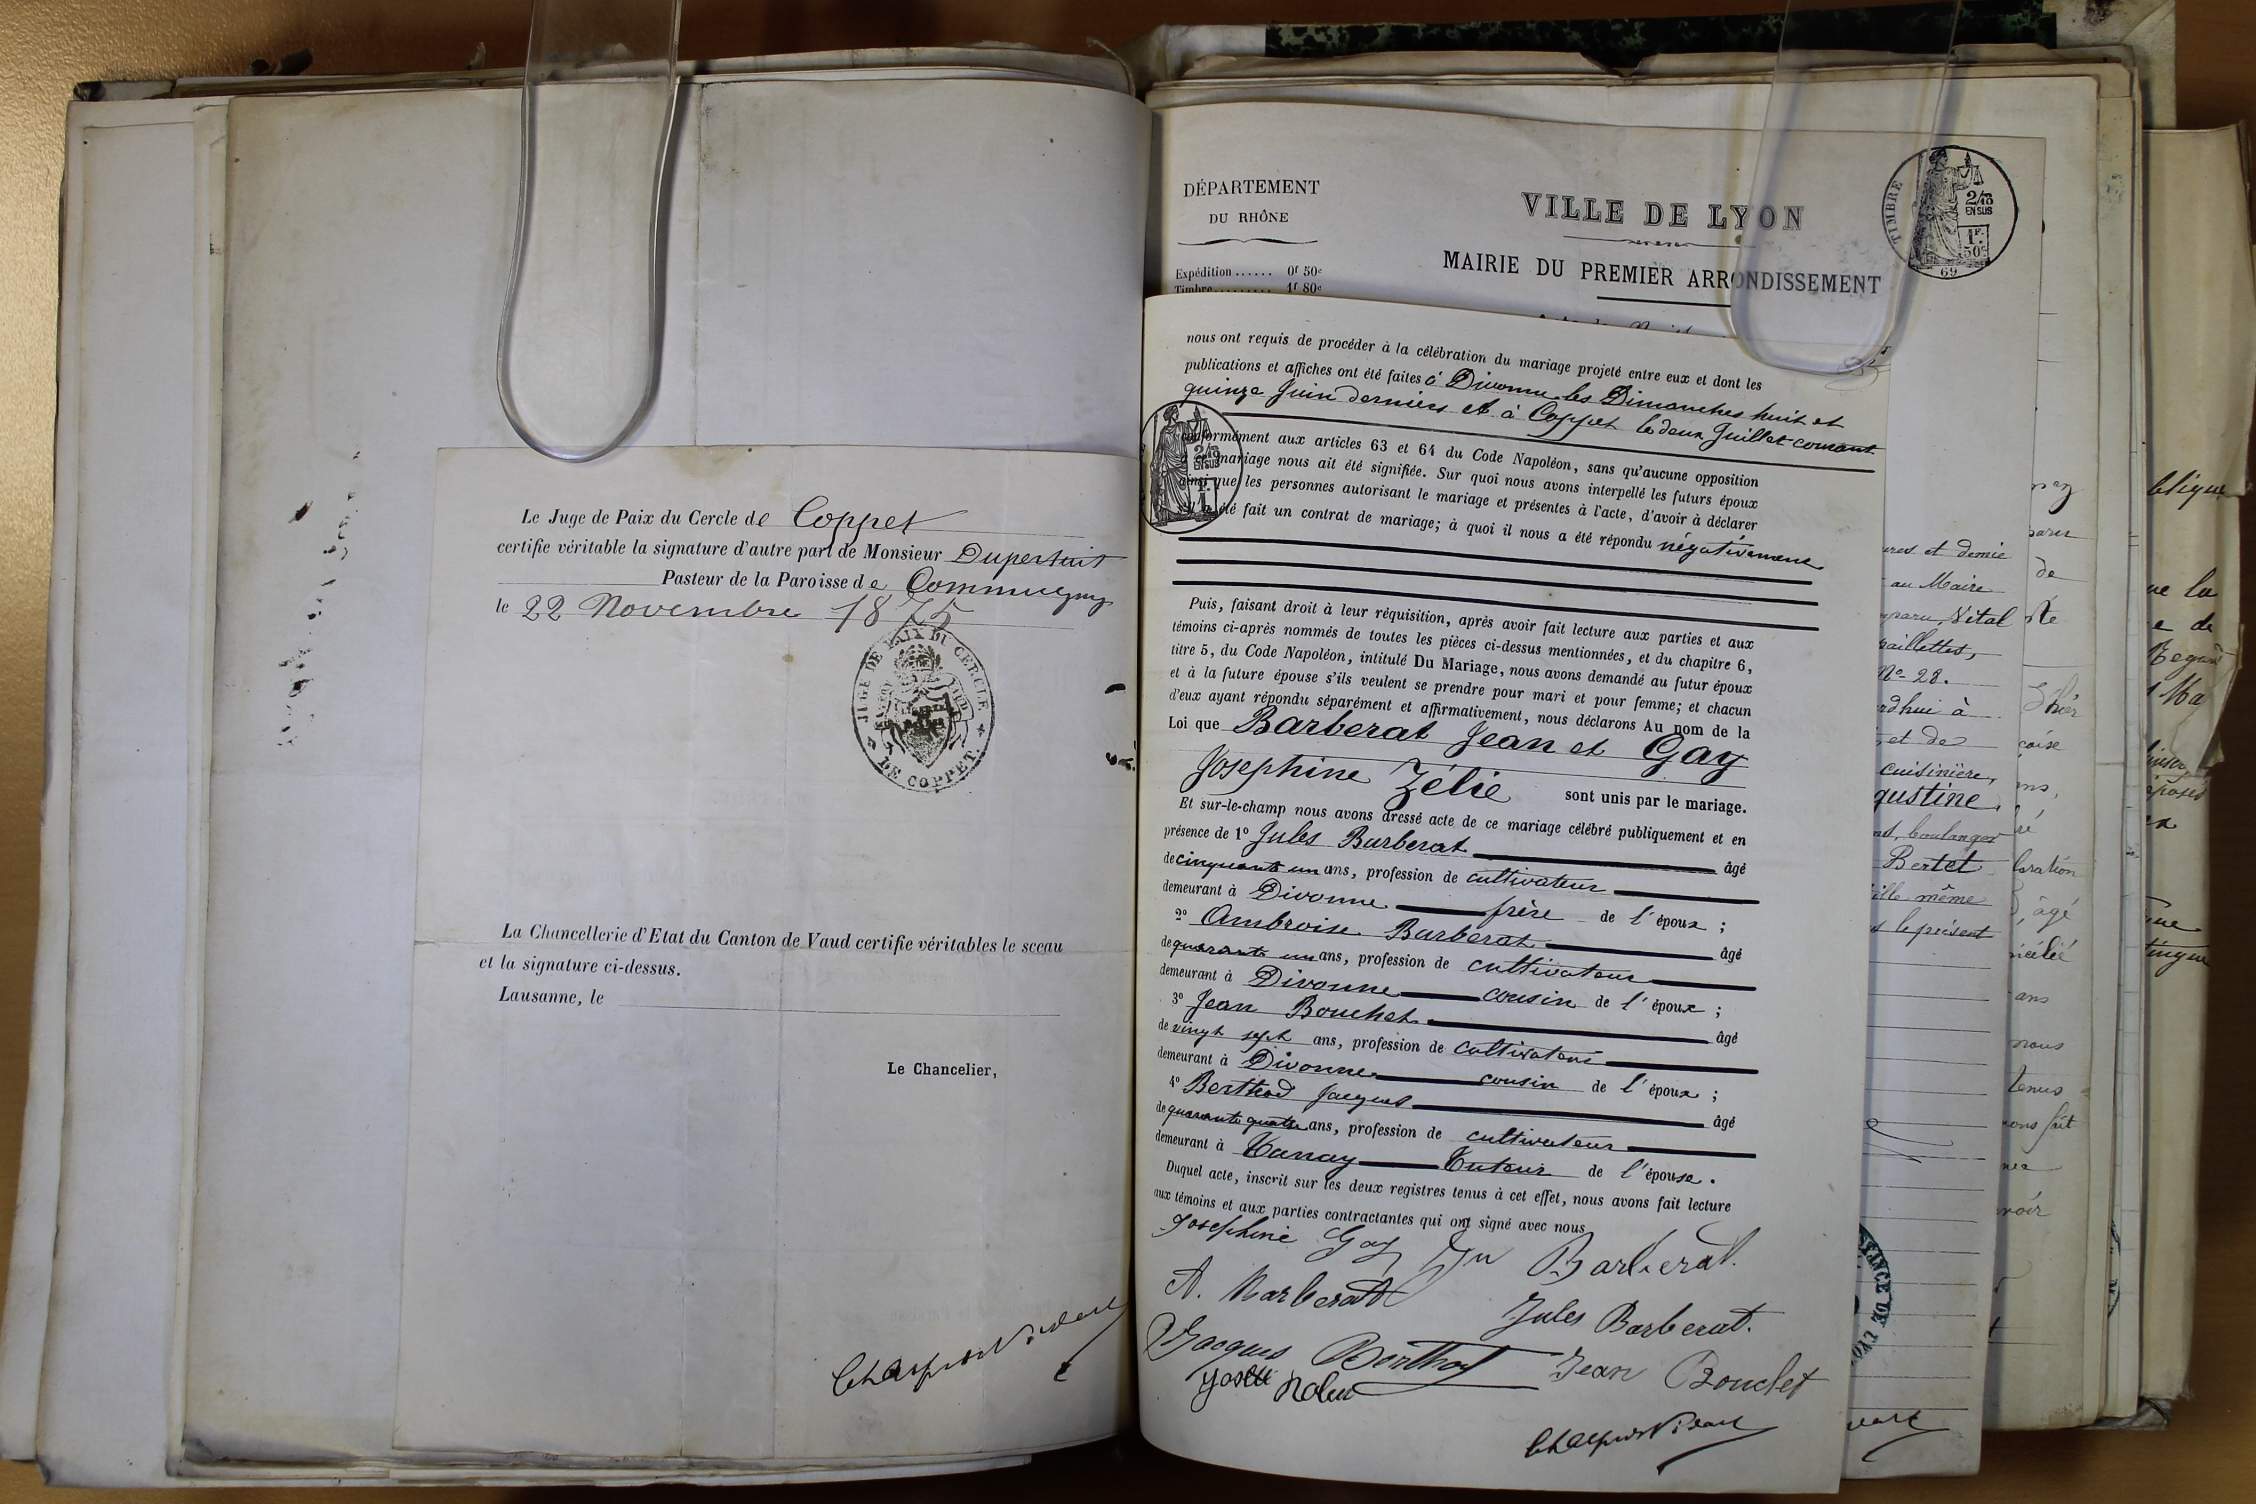 Le Juge de Paix du Cercle de Coppet
certifie véritable la signature d'autre part de Monsieur Dupertuit
Pasteur de la Paroisse de Commugny
le 22 Novembre 1875
JUGE DE PAIX DU CERCLE
DE COPPET.
La Chancellerie d'Etat du Canton de Vaud certifie véritables le sceau
et la signature ci-dessus.
Lausanne, le
Le Chancelier,
DÉPARTEMENT
DU RHÔNE
VILLE DE LYON
MAIRIE DU PREMIER ARRONDISSEMENT
Expédition ...... 0f 50c
Timbre ......... 1f 80c
TIMBRE
2/10
EN SUS
1F.
50c
69
nous ont requis de procéder à la célébration du mariage projeté entre eux et dont les
publications et affiches ont été faites à Divonne les Dimanches huit et
quinze Juin derniers et à Coppet le deux Juillet courant
conformément aux articles 63 et 64 du Code Napoléon, sans qu'aucune opposition
à ce mariage nous ait été signifiée. Sur quoi nous avons interpellé les futurs époux
ainsi que les personnes autorisant le mariage et présentes à l'acte, d'avoir à déclarer
s'il a été fait un contrat de mariage; à quoi il nous a été répondu négativement
2/10
EN SUS
1F.
Puis, faisant droit à leur réquisition, après avoir fait lecture aux parties et aux
témoins ci-après nommés de toutes les pièces ci-dessus mentionnées, et du chapitre 6,
titre 5, du Code Napoléon, intitulé Du Mariage, nous avons demandé au futur époux
et à la future épouse s'ils veulent se prendre pour mari et pour femme; et chacun
d'eux ayant répondu séparément et affirmativement, nous déclarons Au nom de la
Loi que Barberat Jean et Gay
Josephine Zélie sont unis par le mariage.
Et sur-le-champ nous avons dressé acte de ce mariage célébré publiquement et en
présence de 1o Jules Barberat âgé
de cinquante un ans, profession de cultivateur
demeurant à Divonne frère de l'époux ;
2o Ambroise Barberat âgé
de quarante un ans, profession de cultivateur
demeurant à Divonne cousin de l'époux ;
3o Jean Bouchet âgé
de vingt sept ans, profession de cultivateur
demeurant à Divonne cousin de l'époux ;
4o Berthod Jacques âgé
de quarante quatre ans, profession de cultivateur
demeurant à Tanay Tuteur de l'épouse.
Duquel acte, inscrit sur les deux registres tenus à cet effet, nous avons fait lecture
aux témoins et aux parties contractantes qui ont signé avec nous
Josephine Gay Jn Barberat.
A. Barberat
Jules Barberat.
Jacques Berthod Jean Bouchet
ures et demie
au Maire
Vital
paillettes,
No 28.
rdhui à
et de
cuisinière,
gustine
boulanger
Bertet
ille même
le présent
de
âgé
ans
nous
tenus
blique